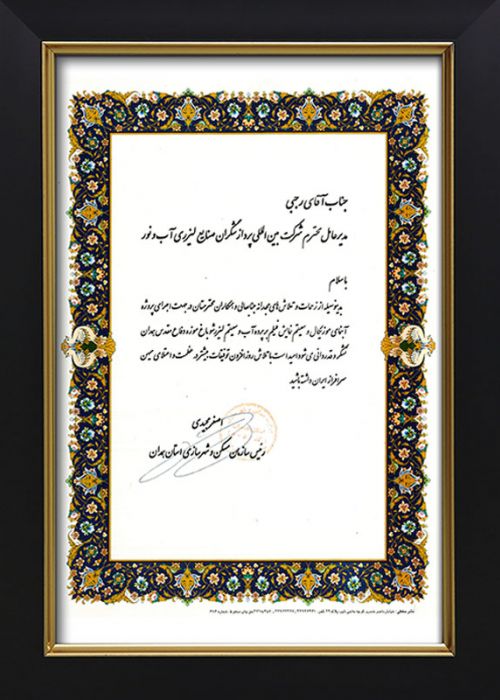 جناب آقای رجبی
مدیرعامل محترم شرکت بین المللی پردازشگران صنایع لیزری آب و نور
با سلام
بدینوسیله از زحمات و تلاش های مجدانه جنابعالی و همکاران محترمتان در جهت اجرای پروژه
آبنمای موزیکال و سیستم نمایش فیلم بر پرده آب و سیستم لیزرشو باغ موزه دفاع مقدس همدان
تشکر و قدردانی می شود امید است با تلاش روز افزون توفیقات بیشتر در عظمت و اعتلای میهن
سرافراز ایران داشته باشید
اصغر مجیدی
رئیس سازمان مسکن و شهرسازی استان همدان